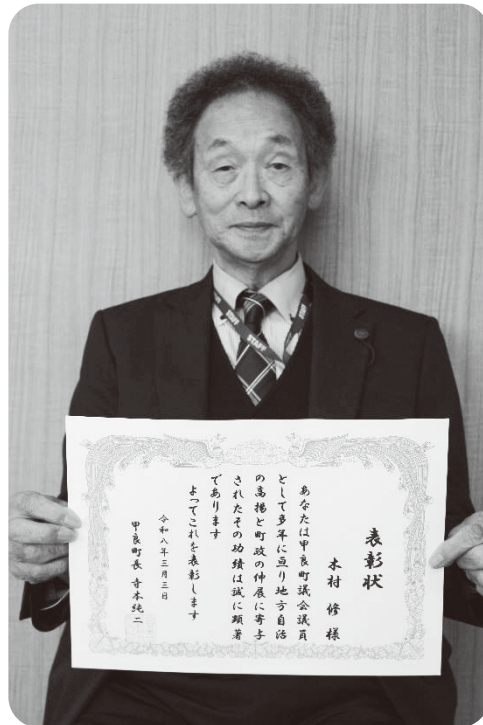 表彰状
木村 修 様
あなたは甲良町議会議員
として多年に亘り地方自治
の高揚と町政の伸展に寄与
されたその功績は誠に顕著
であります
よってこれを表彰します
令和八年三月三日
甲良町長 寺本純二
STAFF